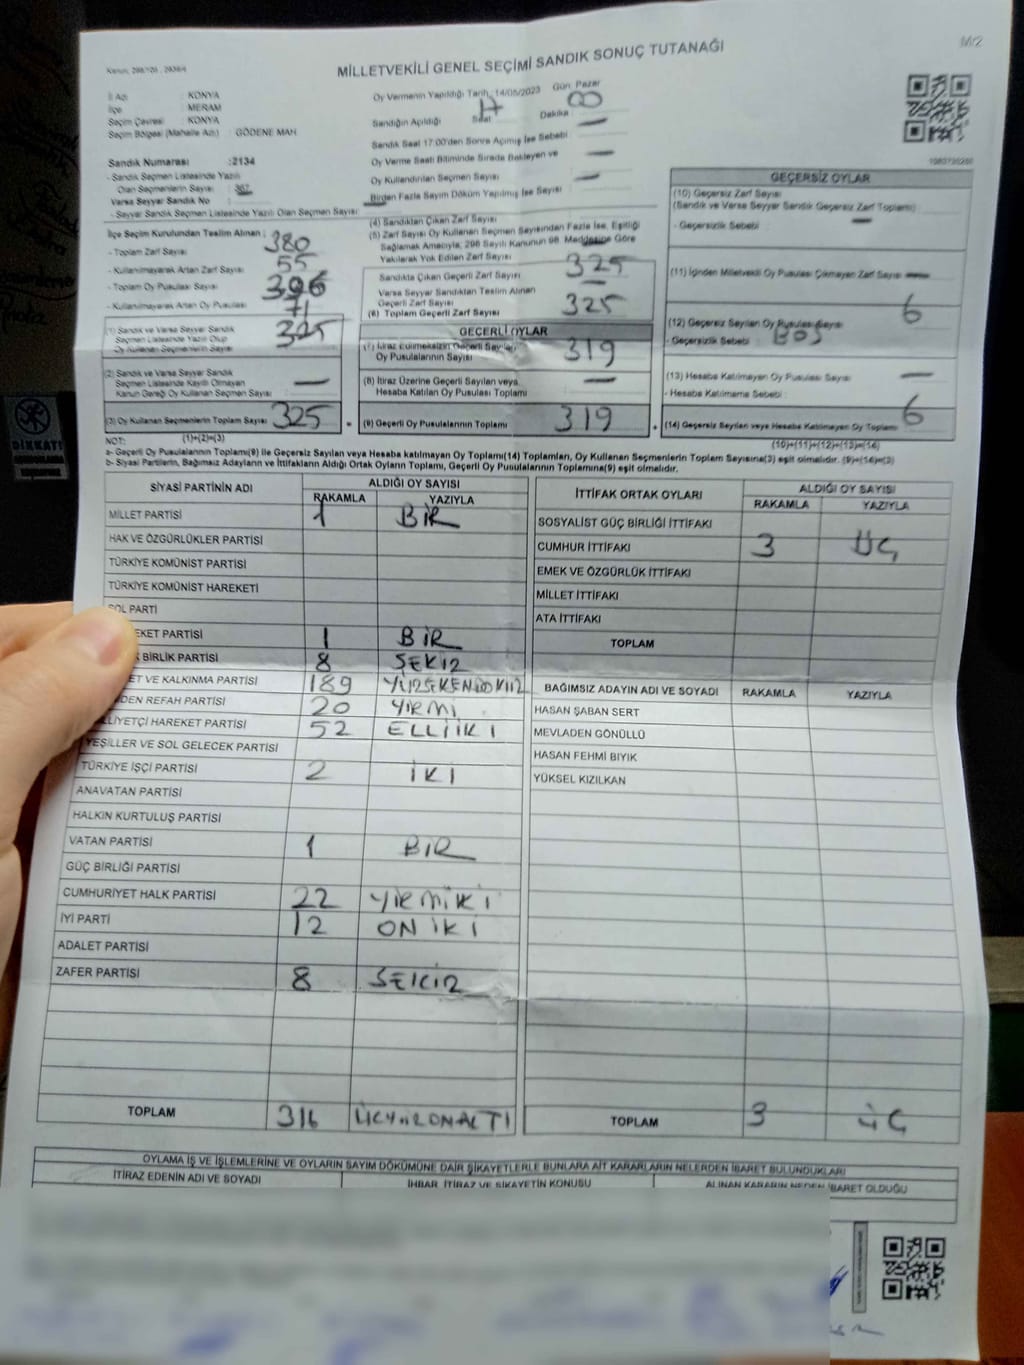 M/2
MİLLETVEKİLİ GENEL SEÇİMİ SANDIK SONUÇ TUTANAĞI
İl Adı : KONYA
İlçe : MERAM
Seçim Çevresi : KONYA
Seçim Bölgesi (Mahalle Adı) : GÖDENE MAH
Sandık Numarası :2134
- Sandık Seçmen Listesinde Yazılı
Olan Seçmenlerin Sayısı : 367
Varsa Seyyar Sandık No
- Seyyar Sandık Seçmen Listesinde Yazılı Olan Seçmen Sayısı
İlçe Seçim Kurulundan Teslim Alınan :
- Toplam Zarf Sayısı : 380
- Kullanılmayarak Artan Zarf Sayısı : 55
- Toplam Oy Pusulası : 396
- Kullanılmayarak Artan Oy Pusulası : 71
(1) Sandık ve Varsa Seyyar Sandık
Seçmen Listesinde Yazılı Olup
Oy Kullanan Seçmenlerin Sayısı : 325
(2) Sandık ve Varsa Seyyar Sandık
Seçmen Listesinde Kayıtlı Olmayan
Kanun Gereği Oy Kullanan Seçmen Sayısı : —
(3) Oy Kullanan Seçmenlerin Toplam Sayısı : 325
Oy Vermenin Yapıldığı Tarih, 14/05/2023 Gün: Pazar
Sandığın Açıldığı Saat 17 Dakika : 00
Sandık Saat 17:00'den Sonra Açılmış İse Sebebi : —
Oy Verme Saati Bitiminde Sırada Bekleyen ve
Oy Kullandırılan Seçmen Sayısı : —
Birden Fazla Sayım Döküm Yapılmış İse Sayısı : —
(4) Sandıktan Çıkan Zarf Sayısı
(5) Zarf Sayısı Oy Kullanan Seçmen Sayısından Fazla İse, Eşitliği
Sağlamak Amacıyla, 298 Sayılı Kanunun 98. Maddesine Göre
Yakılarak Yok Edilen Zarf Sayısı
Sandıkta Çıkan Geçerli Zarf Sayısı : 325
Varsa Seyyar Sandıktan Teslim Alınan
Geçerli Zarf Sayısı : —
(6) Toplam Geçerli Zarf Sayısı : 325
GEÇERLİ OYLAR
(7) İtiraz Edilmeksizin Geçerli Sayılan
Oy Pusulalarının Sayısı : 319
(8) İtiraz Üzerine Geçerli Sayılan veya
Hesaba Katılan Oy Pusulası Toplamı : —
(9) Geçerli Oy Pusulalarının Toplamı : 319
GEÇERSİZ OYLAR
(10) Geçersiz Zarf Sayısı
(Sandık ve Varsa Seyyar Sandık Geçersiz Zarf Toplamı) : —
- Geçersizlik Sebebi :
(11) İçinden Milletvekili Oy Pusulası Çıkmayan Zarf Sayısı : —
(12) Geçersiz Sayılan Oy Pusulası Sayısı : 6
- Geçersizlik Sebebi : BOŞ
(13) Hesaba Katılmayan Oy Pusulası Sayısı : —
- Hesaba Katılmama Sebebi :
(14) Geçersiz Sayılan veya Hesaba Katılmayan Oy Toplamı : 6
NOT: (1)+(2)=(3) (10)+(11)+(12)+(13)=(14)
a- Geçerli Oy Pusulalarının Toplamı(9) ile Geçersiz Sayılan veya Hesaba katılmayan Oy Toplamı(14) Toplamları, Oy Kullanan Seçmenlerin Toplam Sayısına(3) eşit olmalıdır. (9)+(14)=(3)
b- Siyasi Partilerin, Bağımsız Adayların ve İttifakların Aldığı Ortak Oyların Toplamı, Geçerli Oy Pusulalarının Toplamına(9) eşit olmalıdır.
SİYASİ PARTİNİN ADI ALDIĞI OY SAYISI
RAKAMLA YAZIYLA
MİLLET PARTİSİ 1 BİR
HAK VE ÖZGÜRLÜKLER PARTİSİ
TÜRKİYE KOMÜNİST PARTİSİ
TÜRKİYE KOMÜNİST HAREKETİ
SOL PARTİ
EKET PARTİSİ 1 BİR
K BİRLİK PARTİSİ 8 SEKİZ
ET VE KALKINMA PARTİSİ 189 YÜZSEKENDOKUZ
DEN REFAH PARTİSİ 20 YİRMİ
LLİYETÇİ HAREKET PARTİSİ 52 ELLİİKİ
YEŞİLLER VE SOL GELECEK PARTİSİ
TÜRKİYE İŞÇİ PARTİSİ 2 İKİ
ANAVATAN PARTİSİ
HALKIN KURTULUŞ PARTİSİ
VATAN PARTİSİ 1 BİR
GÜÇ BİRLİĞİ PARTİSİ
CUMHURİYET HALK PARTİSİ 22 YİRMİKİ
İYİ PARTİ 12 ONİKİ
ADALET PARTİSİ
ZAFER PARTİSİ 8 SEKİZ
TOPLAM 316 ÜÇYÜZONALTI
İTTİFAK ORTAK OYLARI ALDIĞI OY SAYISI
RAKAMLA YAZIYLA
SOSYALİST GÜÇ BİRLİĞİ İTTİFAKI
CUMHUR İTTİFAKI 3 ÜÇ
EMEK VE ÖZGÜRLÜK İTTİFAKI
MİLLET İTTİFAKI
ATA İTTİFAKI
TOPLAM
BAĞIMSIZ ADAYIN ADI VE SOYADI RAKAMLA YAZIYLA
HASAN ŞABAN SERT
MEVLADEN GÖNÜLLÜ
HASAN FEHMİ BIYIK
YÜKSEL KIZILKAN
TOPLAM 3 ÜÇ
OYLAMA İŞ VE İŞLEMLERİNE VE OYLARIN SAYIM DÖKÜMÜNE DAİR ŞİKAYETLERLE BUNLARA AİT KARARLARIN NELERDEN İBARET BULUNDUKLARI
İTİRAZ EDENİN ADI VE SOYADI İHBAR, İTİRAZ VE ŞİKAYETİN KONUSU ALINAN KARARIN NEDEN İBARET OLDUĞU
DİKKAT!